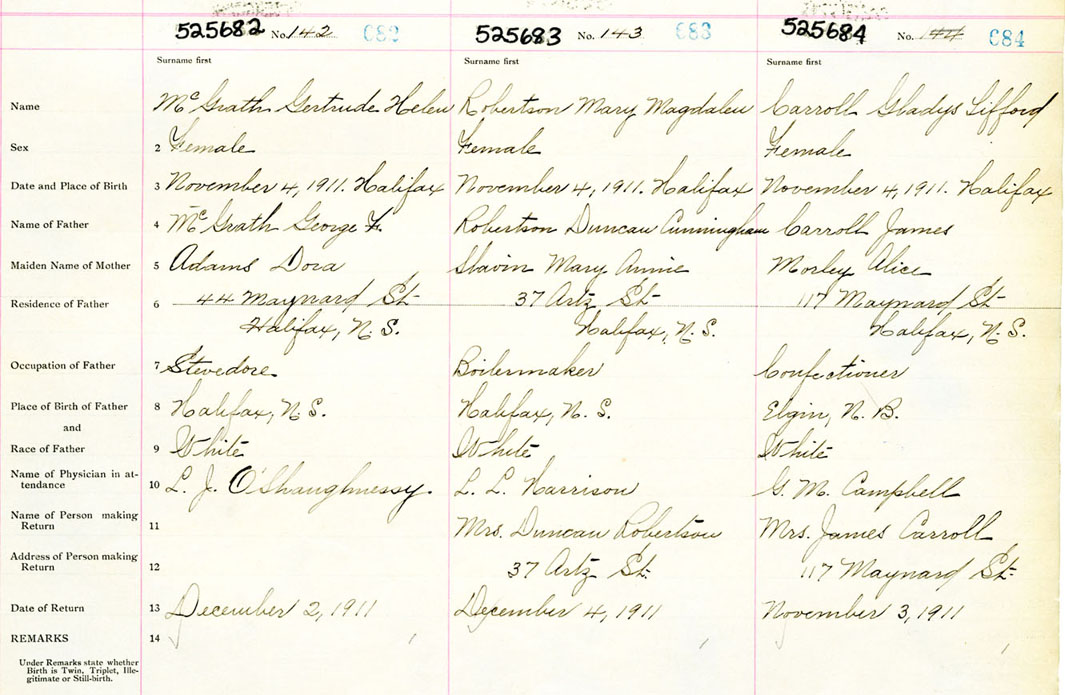 525682 No. 142 682 525683 No. 143 683 525684 No. 144 684
Surname first Surname first Surname first
Name McGrath Gertrude Helen Robertson Mary Magdalen Carroll Gladys Lifford
Sex 2 Female Female Female
Date and Place of Birth 3 November 4, 1911. Halifax November 4, 1911. Halifax November 4, 1911. Halifax
Name of Father 4 McGrath George F. Robertson Duncan Cunningham Carroll James
Maiden Name of Mother 5 Adams Dora Slavin Mary Annie Morley Alice
Residence of Father 6 44 Maynard St 37 Artz St 117 Maynard St
Halifax, N.S. Halifax, N.S. Halifax, N.S.
Occupation of Father 7 Stevedore. Boilermaker Confectioner
Place of Birth of Father 8 Halifax, N.S. Halifax, N.S. Elgin, N.B.
and
Race of Father 9 White White White
Name of Physician in at-
tendance 10 L. J. O'Shaughnessy. L. L. Harrison G. M. Campbell
Name of Person making
Return 11 Mrs. Duncan Robertson Mrs. James Carroll
Address of Person making
Return 12 37 Artz St. 117 Maynard St.
Date of Return 13 December 2, 1911 December 4, 1911 November 3, 1911
REMARKS 14
Under Remarks state whether
Birth is Twin, Triplet, Ille-
gitimate or Still-birth.